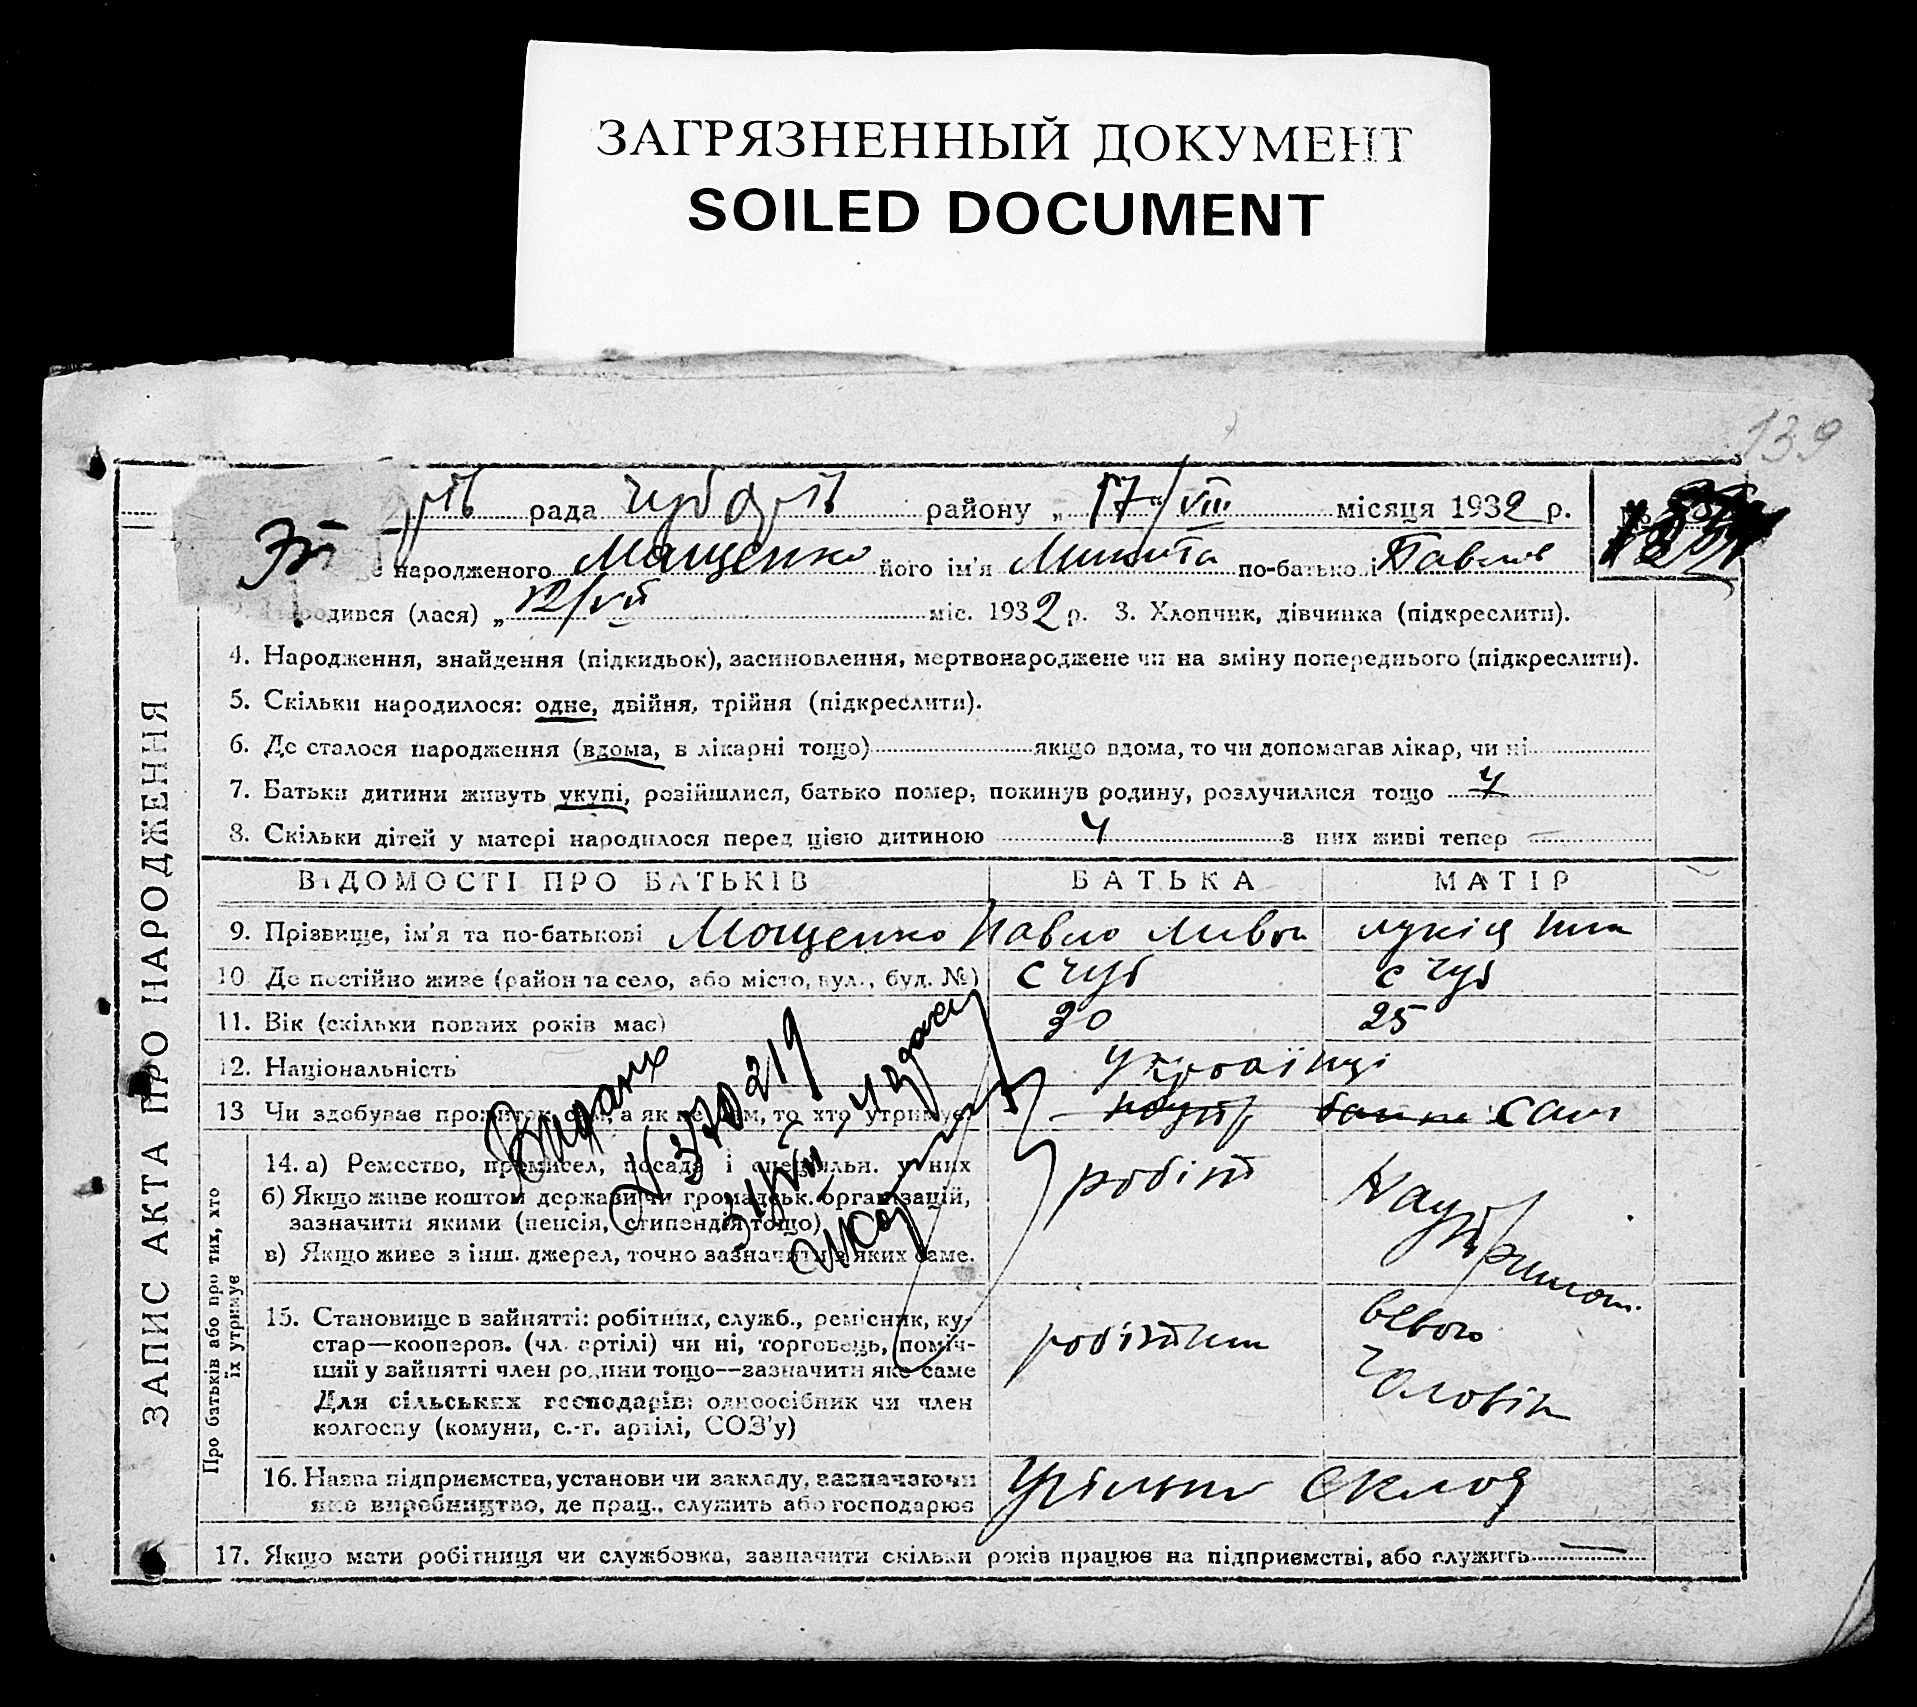 ЗАГРЯЗНЕННЫЙ ДОКУМЕНТ
SOILED DOCUMENT
139
рада району „17“/VIII місяця 1932 р. №
народженого Мащенко його ім'я Микита по-батькові Павлов
родився (лася) „12/VII міс. 1932 р. 3. Хлопчик, дівчинка (підкреслити).
4. Народження, знайдення (підкидьок), засиновлення, мертвонароджене чи на зміну попереднього (підкреслити).
5. Скільки народилося: одне, двійня, трійня (підкреслити).
6. Де сталося народження (вдома, в лікарні тощо) якщо вдома, то чи допомагав лікар, чи ні
7. Батьки дитини живуть укупі, розійшлися, батько помер, покинув родину, розлучилися тощо 4
8. Скільки дітей у матері народилося перед цією дитиною 4 з них живі тепер —
ВІДОМОСТІ ПРО БАТЬКІВ БАТЬКА МАТІР
9. Прізвище, ім'я та по-батькові Мощенко Павло
10 Де постійно живе (район та село, або місто, вул., буд. №) с чуб с чуб
11. Вік (скільки повних років має) 30 25
12. Національність Українці
13 Чи здобуває прожиток сам, а як не сам, то хто утримує сам
14. а) Ремество, промисел, посада і спеціяльн. у них робітн
б) Якщо живе коштом держави чи громадськ. організацій,
зазначити якими (пенсія, стипендія тощо)
в) Якщо живе з інш. джерел, точно зазначити з яких саме.
15. Становище в зайнятті: робітник, служб., ремісник, ку-
стар—кооперов. (чл. артілі) чи ні, торговець, поміч-
ний у зайнятті член родини тощо—зазначити яке саме
Для сільських господарів: одноосібник чи член
колгоспу (комуни, с.-г. артілі, СОЗ'у)
робітник
свого
чоловік
16. Назва підприємства, установи чи закладу, зазначаючи
яке виробництво, де прац., служить або господарює
17. Якщо мати робітниця чи службовка, зазначити скільки років працює на підприємстві, або служить —
ЗАПИС АКТА ПРО НАРОДЖЕННЯ
Про батьків або про тих, хто
їх утримує
Видано
N 370219
31/VIII